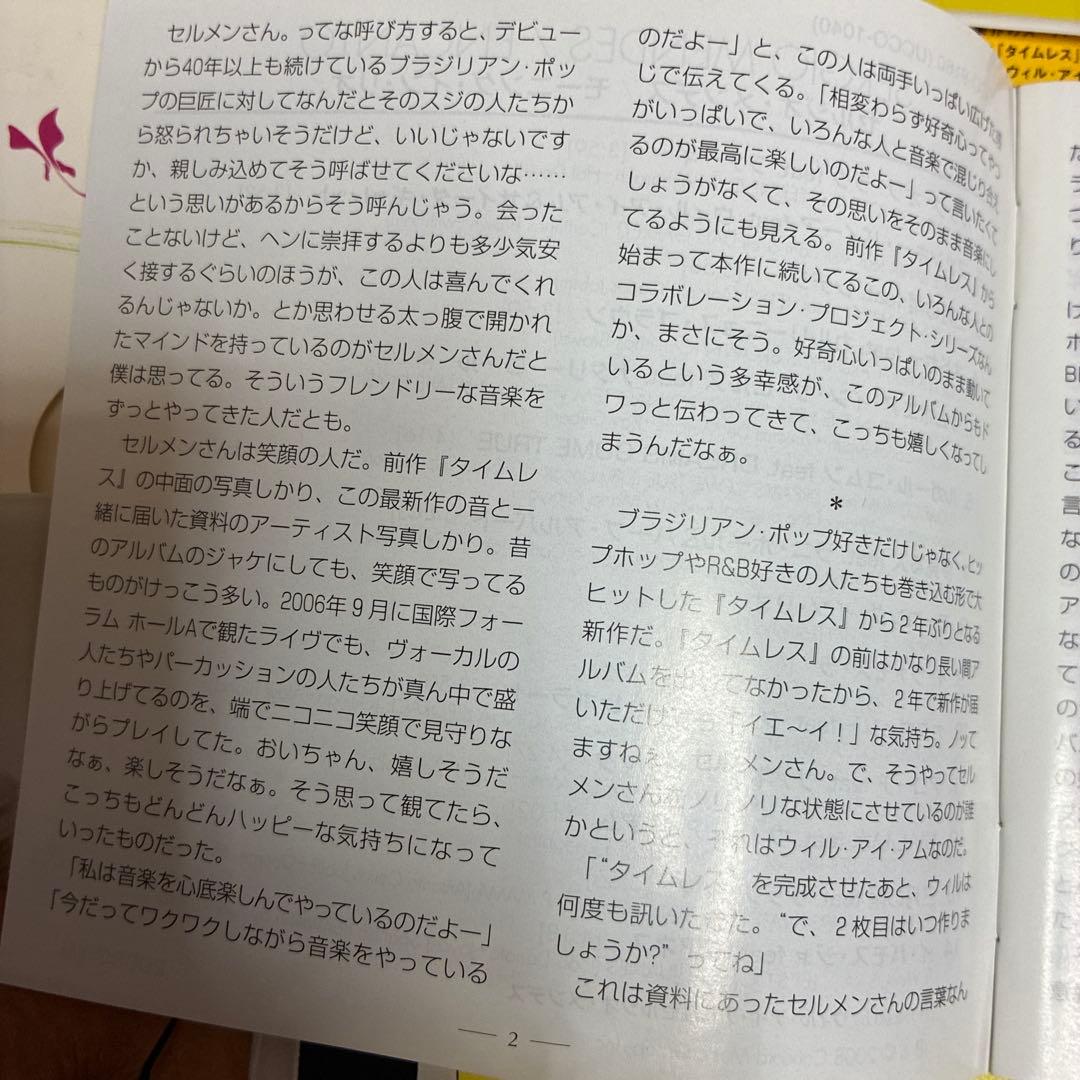 セルメンさん。ってな呼び方すると、デビュー
から40年以上も続けているブラジリアン・ポッ
プの巨匠に対してなんだとそのスジの人たちか
ら怒られちゃいそうだけど、いいじゃないです
か、親しみ込めてそう呼ばせてくださいな……
という思いがあるからそう呼んじゃう。会った
ことないけど、ヘンに崇拝するよりも多少気安
く接するぐらいのほうが、この人は喜んでくれ
るんじゃないか。とか思わせる太っ腹で開かれ
たマインドを持っているのがセルメンさんだと
僕は思ってる。そういうフレンドリーな音楽を
ずっとやってきた人だとも。
セルメンさんは笑顔の人だ。前作『タイムレ
ス』の中面の写真しかり、この最新作の音と一
緒に届いた資料のアーティスト写真しかり。昔
のアルバムのジャケにしても、笑顔で写ってる
ものがけっこう多い。2006年9月に国際フォー
ラム ホールAで観たライヴでも、ヴォーカルの
人たちやパーカッションの人たちが真ん中で盛
り上げてるのを、端でニコニコ笑顔で見守りな
がらプレイしてた。おいちゃん、嬉しそうだ
なぁ、楽しそうだなぁ。そう思って観てたら、
こっちもどんどんハッピーな気持ちになって
いったものだった。
「私は音楽を心底楽しんでやっているのだよー」
「今だってワクワクしながら音楽をやっている
のだよー」と、この人は両手いっぱい広げた
じで伝えてくる。「相変わらず好奇心ってやつ
がいっぱいで、いろんな人と音楽で混じり合え
るのが最高に楽しいのだよー」って言いたくて
しょうがなくて、その思いをそのまま音楽にし
てるようにも見える。前作『タイムレス』から
始まって本作に続いてるこの、いろんな人との
コラボレーション・プロジェクト・シリーズなん
か、まさにそう。好奇心いっぱいのまま動いて
いるという多幸感が、このアルバムからもド
ワっと伝わってきて、こっちも嬉しくなってし
まうんだなぁ。
＊
ブラジリアン・ポップ好きだけじゃなく、ヒッ
プホップやR&B好きの人たちも巻き込む形で大
ヒットした『タイムレス』から2年ぶりとなる
新作だ。『タイムレス』の前はかなり長い間ア
ルバムを てなかったから、2年で新作が届
いただけ 「イエ〜イ！」な気持ち。ノッて
ますねぇ メンさん。で、そうやってセル
メンさん ノリノリな状態にさせているのが誰
かというと、それはウィル・アイ・アムなのだ。
「“タイムレス を完成させたあと、ウィルは
何度も訊いた た。“で、2枚目はいつ作りま
しょうか?” ってね」
これは資料にあったセルメンさんの言葉なん
— 2 —
『タイムレス』
ウィル・アイ